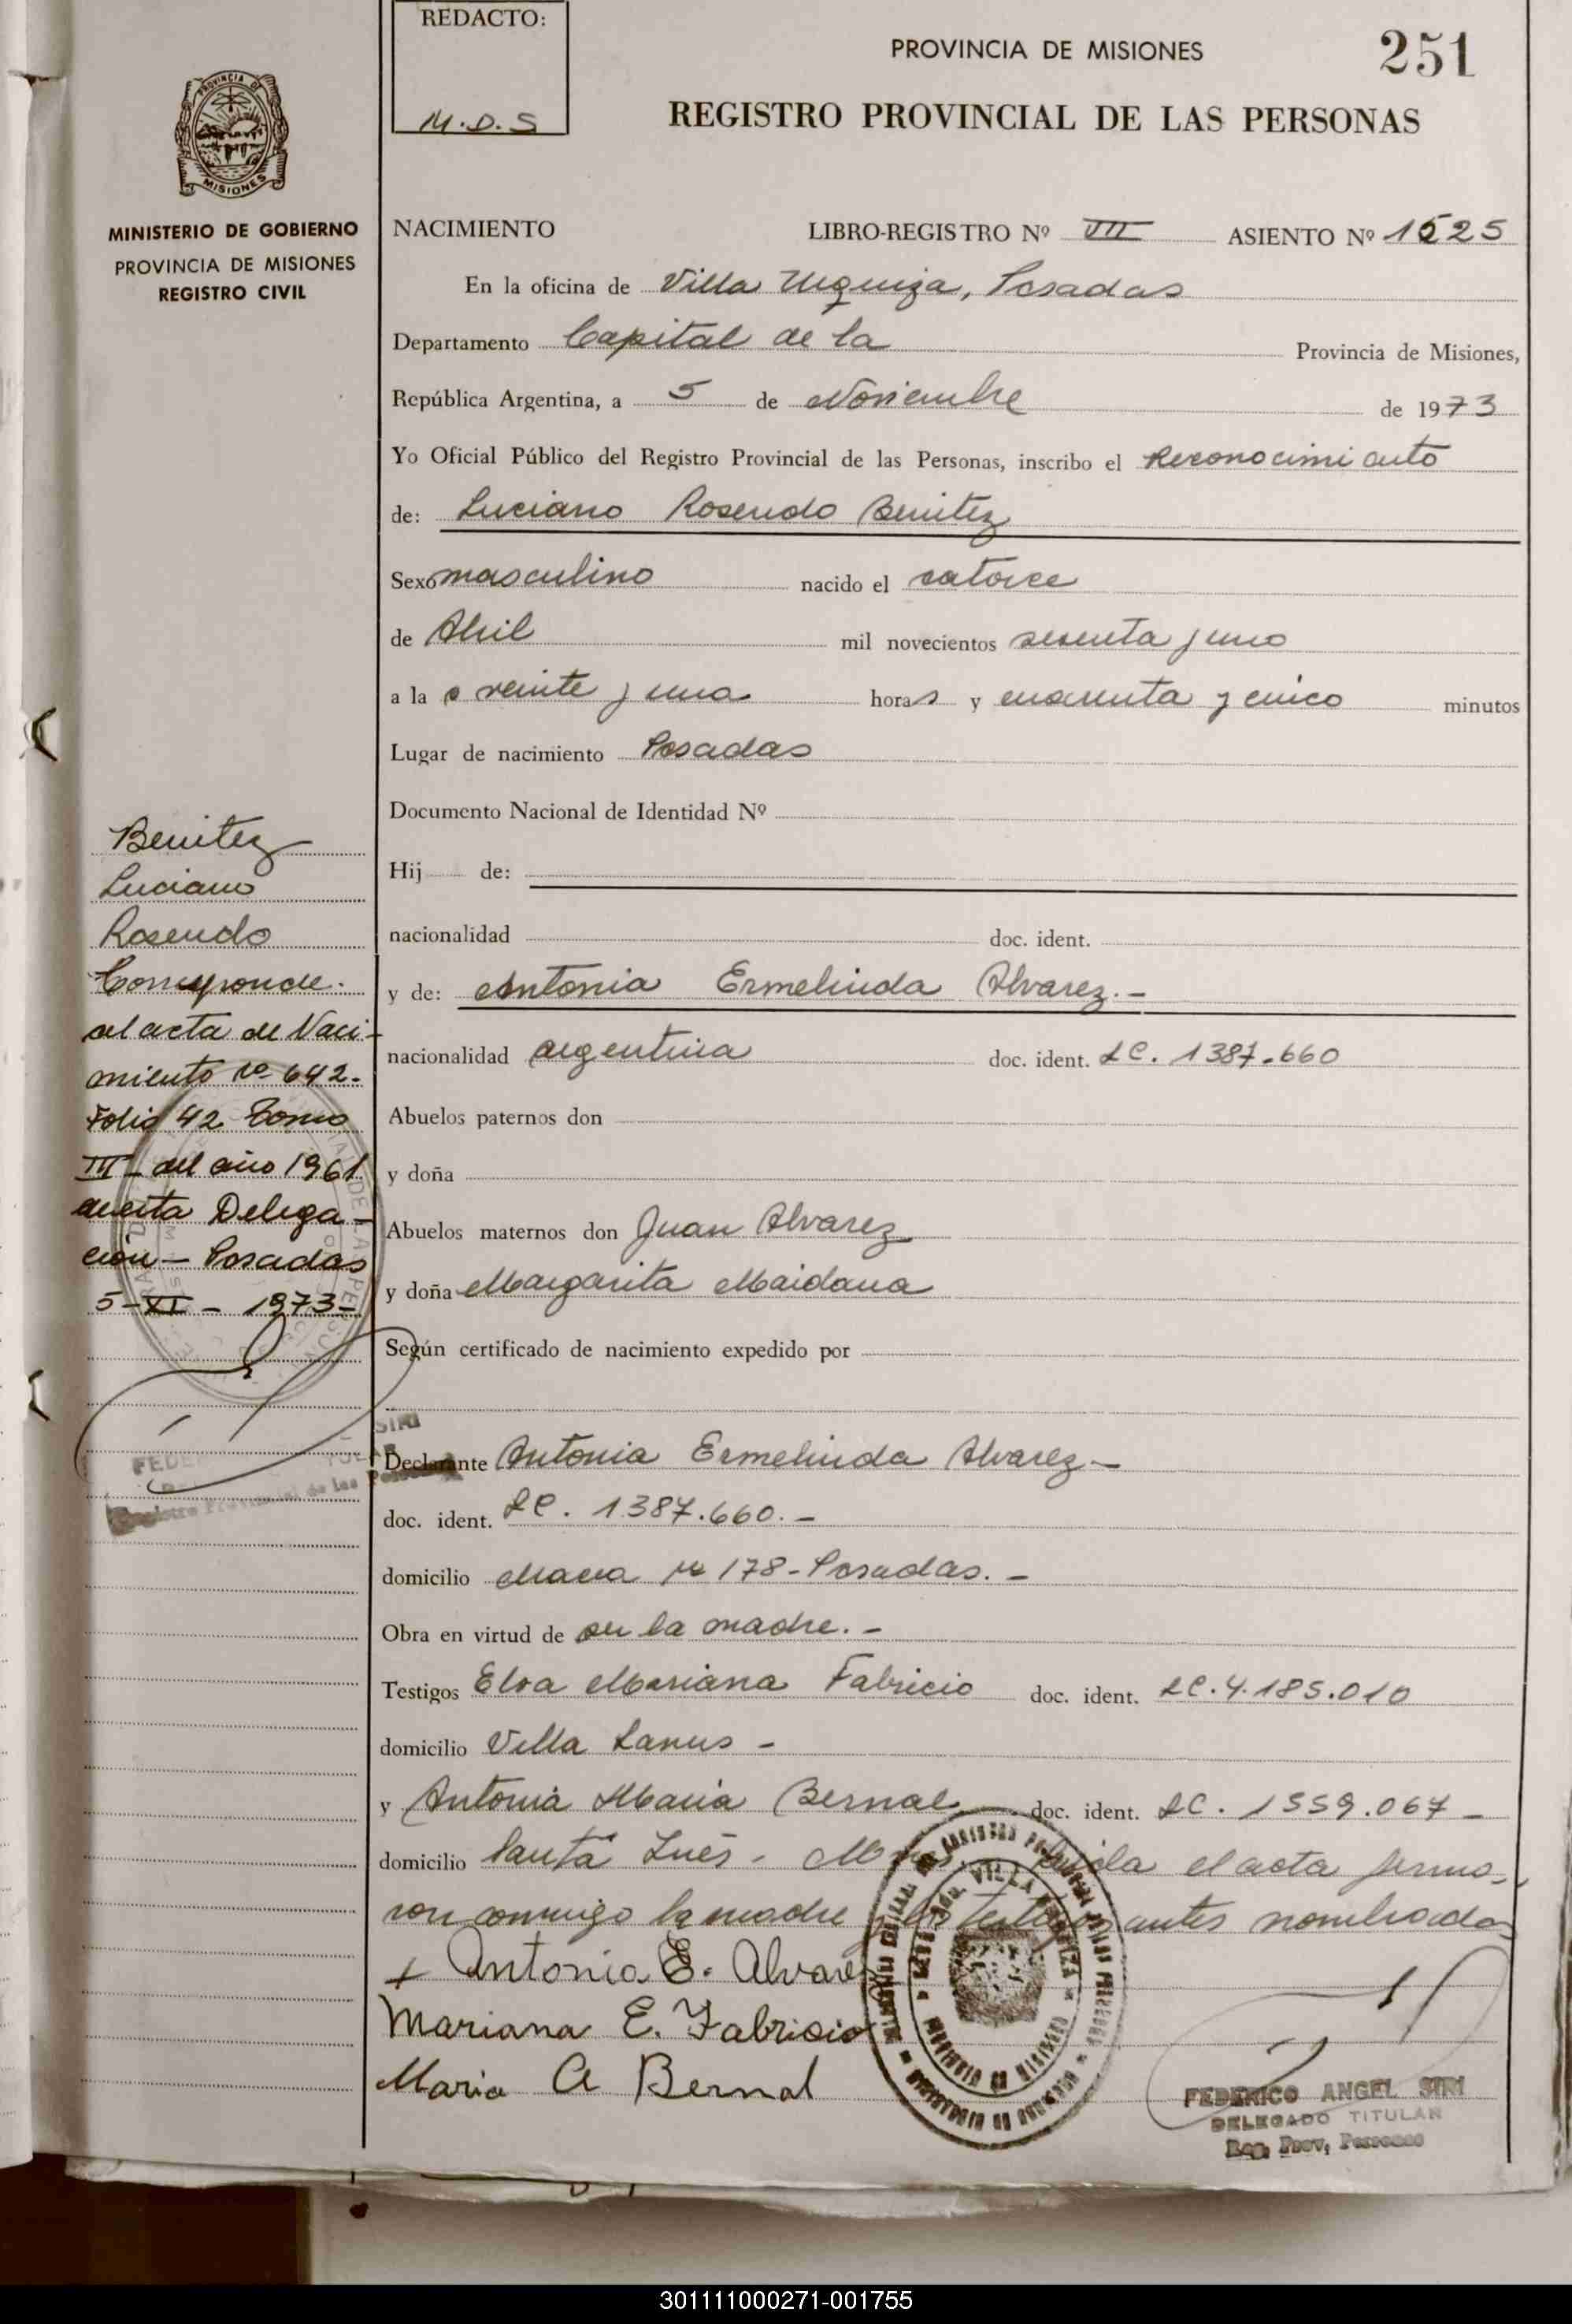 REDACTO:
M.D.S
PROVINCIA DE MISIONES
251
REGISTRO PROVINCIAL DE LAS PERSONAS
PROVINCIA DE
MISIONES
MINISTERIO DE GOBIERNO
PROVINCIA DE MISIONES
REGISTRO CIVIL
NACIMIENTO LIBRO-REGISTRO Nº VII ASIENTO Nº 1525
En la oficina de Villa Urquiza, Posadas
Departamento Capital de la Provincia de Misiones,
República Argentina, a 5 de Noviembre de 1973
Yo Oficial Público del Registro Provincial de las Personas, inscribo el Reconocimiento
de: Luciano Rosendo Benitez
Sexo masculino nacido el catorce
de Abril mil novecientos sesenta y uno
a la s veinte y una horas y cuarenta y cinco minutos
Lugar de nacimiento Posadas
Documento Nacional de Identidad Nº
Hij de:
nacionalidad doc. ident.
y de: Antonia Ermelinda Alvarez.-
nacionalidad argentina doc. ident. LC. 1387.660
Abuelos paternos don
y doña
Abuelos maternos don Juan Alvarez
y doña Margarita Maidana
Según certificado de nacimiento expedido por
Declarante Antonia Ermelinda Alvarez-
doc. ident. LC. 1.387.660.-
domicilio Nº 178-Posadas.-
Obra en virtud de ser la madre.-
Testigos Elva Mariana Fabricio doc. ident. LC.4.185.010
domicilio Villa Lanus -
y Antonia Maria Bernal doc. ident. LC. 1559.067-
domicilio Santa Inés. el acta firma-
ron conmigo la madre y los testigos antes nombrados
+ Antonia E. Alvarez
Mariana E. Fabricio
Maria A Bernal
FEDERICO ANGEL SIRI
DELEGADO TITULAR
Reg. Prov. Personas
Benitez
Luciano
Rosendo
Corresponde
al acta de Naci-
miento Nº 642-
Folio 42 Tomo
III- del año 1961
de esta Delega-
ción - Posadas
5-XI-1973-
301111000271-001755